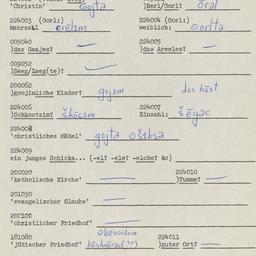 'Christin' gojta )Herl/Oorl? oral
224003 (Oorl:) 224004 (Oorl:)
Mehrzahl orelem weiblich: oorlta
009040 224005
)das Gaajes? — )das Areeles? —
009052
)Seeg/Zeeg(te)? —
200062 das host
)goojimliche Kinder? gojem
224006 224007
)Schkootzim? škocem Einzahl: šegac
224008
'christliches Mädel' gojta
224009
ein junges Schicks... (-el? -ele? -elche? &c)
200020 224010
'katholische Kirche' — )Tumme? —
201030
'evangelischer Glaube' —
200100
'christlicher Friedhof' —
181080 224011
'jüdischer Friedhof' )guter Ort? —